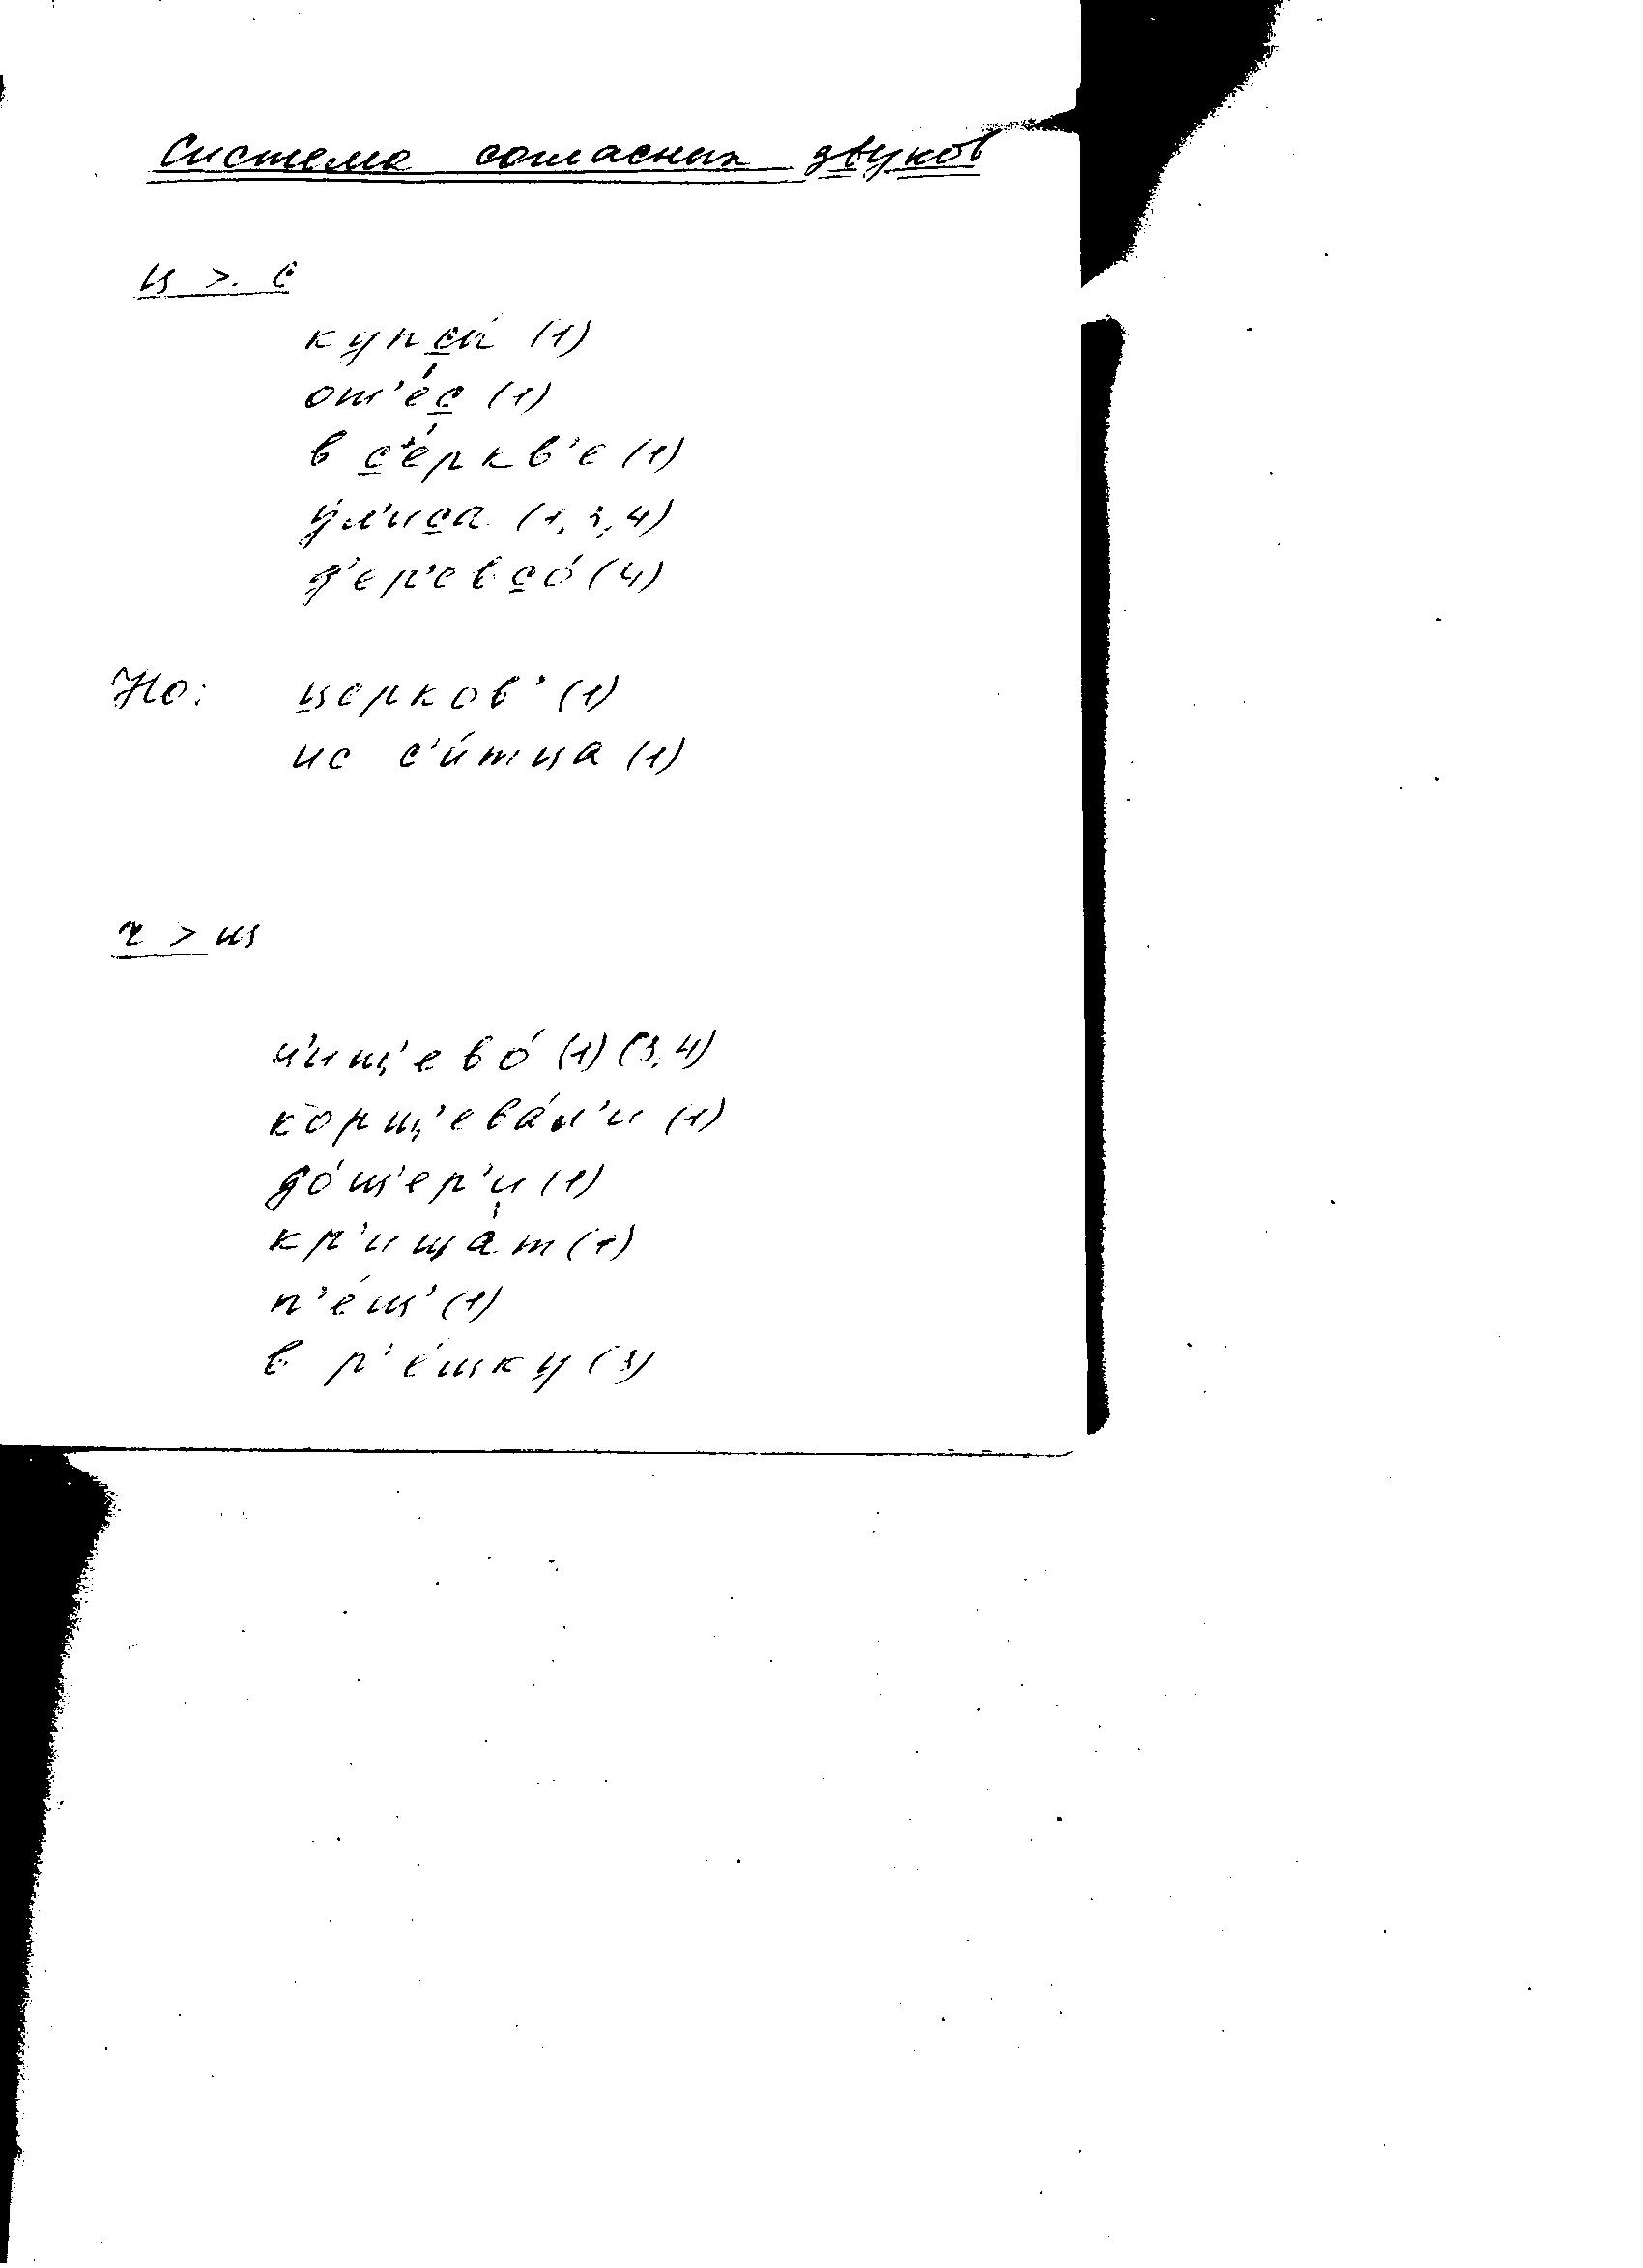 Система согласных звуков
ц > с
купса́ (1)
от'е́с (1)
в с'е́ркв'е (1)
у́л'иса (1, 3, 4)
д'ер'евсо́ (4)
Но: церков' (1)
ис с'и́тца (1)
ч > щ
н'ищ'ево́ (1) (3, 4)
корщ'ева́л'и (1)
до́щ'ер'и (1)
кр'ища́т (1)
п'е́щ' (1)
в р'е́шку (3)